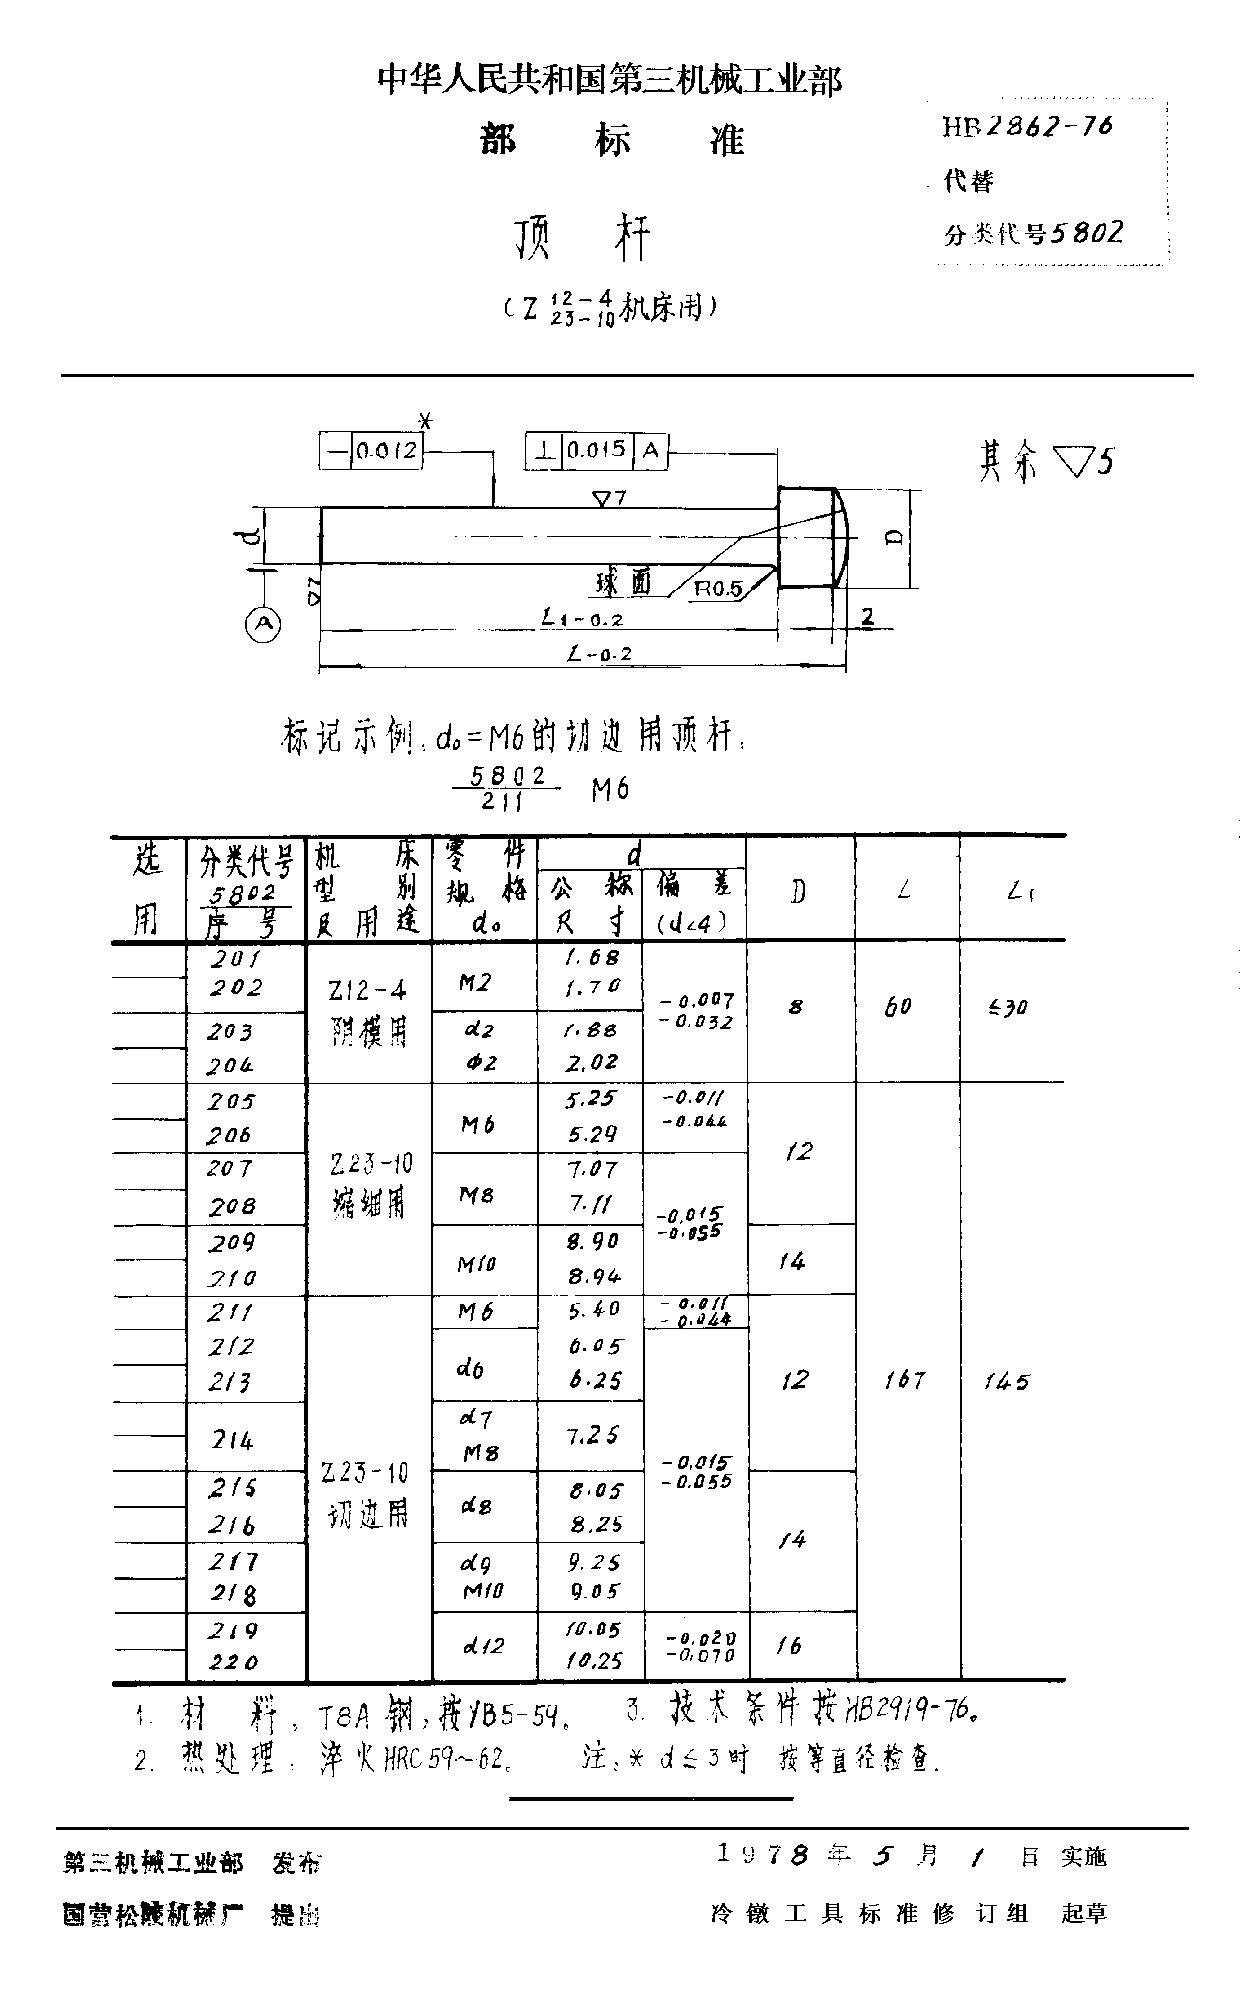 中华人民共和国第三机械工业部
部 标 准
HB2862-76
代替
分类代号5802
顶 杆
(Z 12-4 23-10 机床用)
*
— 0.012
⊥ 0.015 A
其余 ▽5
▽7
d
D
▽7
球面
R0.5
A
L1-0.2
2
L-0.2
标记示例:d₀=M6的切边用顶杆:
5802
211 M6
选用 分类代号5802序号 机床型别及用途 零件规格d₀ d D L L₁
公称尺寸 偏差(d<4)
201 Z12-4阴模用 M2 1.68 -0.007 -0.032 8 60 ≤30
202 1.70
203 d2 1.88
204 Φ2 2.02
205 Z23-10缩细用 M6 5.25 -0.011 -0.044 12 167 145
206 5.29
207 M8 7.07 -0.015 -0.055
208 7.11
209 M10 8.90 14
210 8.94
211 Z23-10切边用 M6 5.40 -0.011 -0.044 12
212 d6 6.05 -0.015 -0.055
213 6.25
214 d7 M8 7.25
215 d8 8.05 14
216 8.25
217 d9 9.25
218 M10 9.05
219 d12 10.05 -0.020 -0.070 16
220 10.25
1. 材 料:T8A钢,按YB5-59。 3. 技术条件按HB2919-76。
2. 热处理:淬火HRC59~62。 注:* d≤3时 按等直径检查.
第三机械工业部 发布
1978年5月1日 实施
国营松陵机械厂 提出
冷镦工具标准修订组 起草